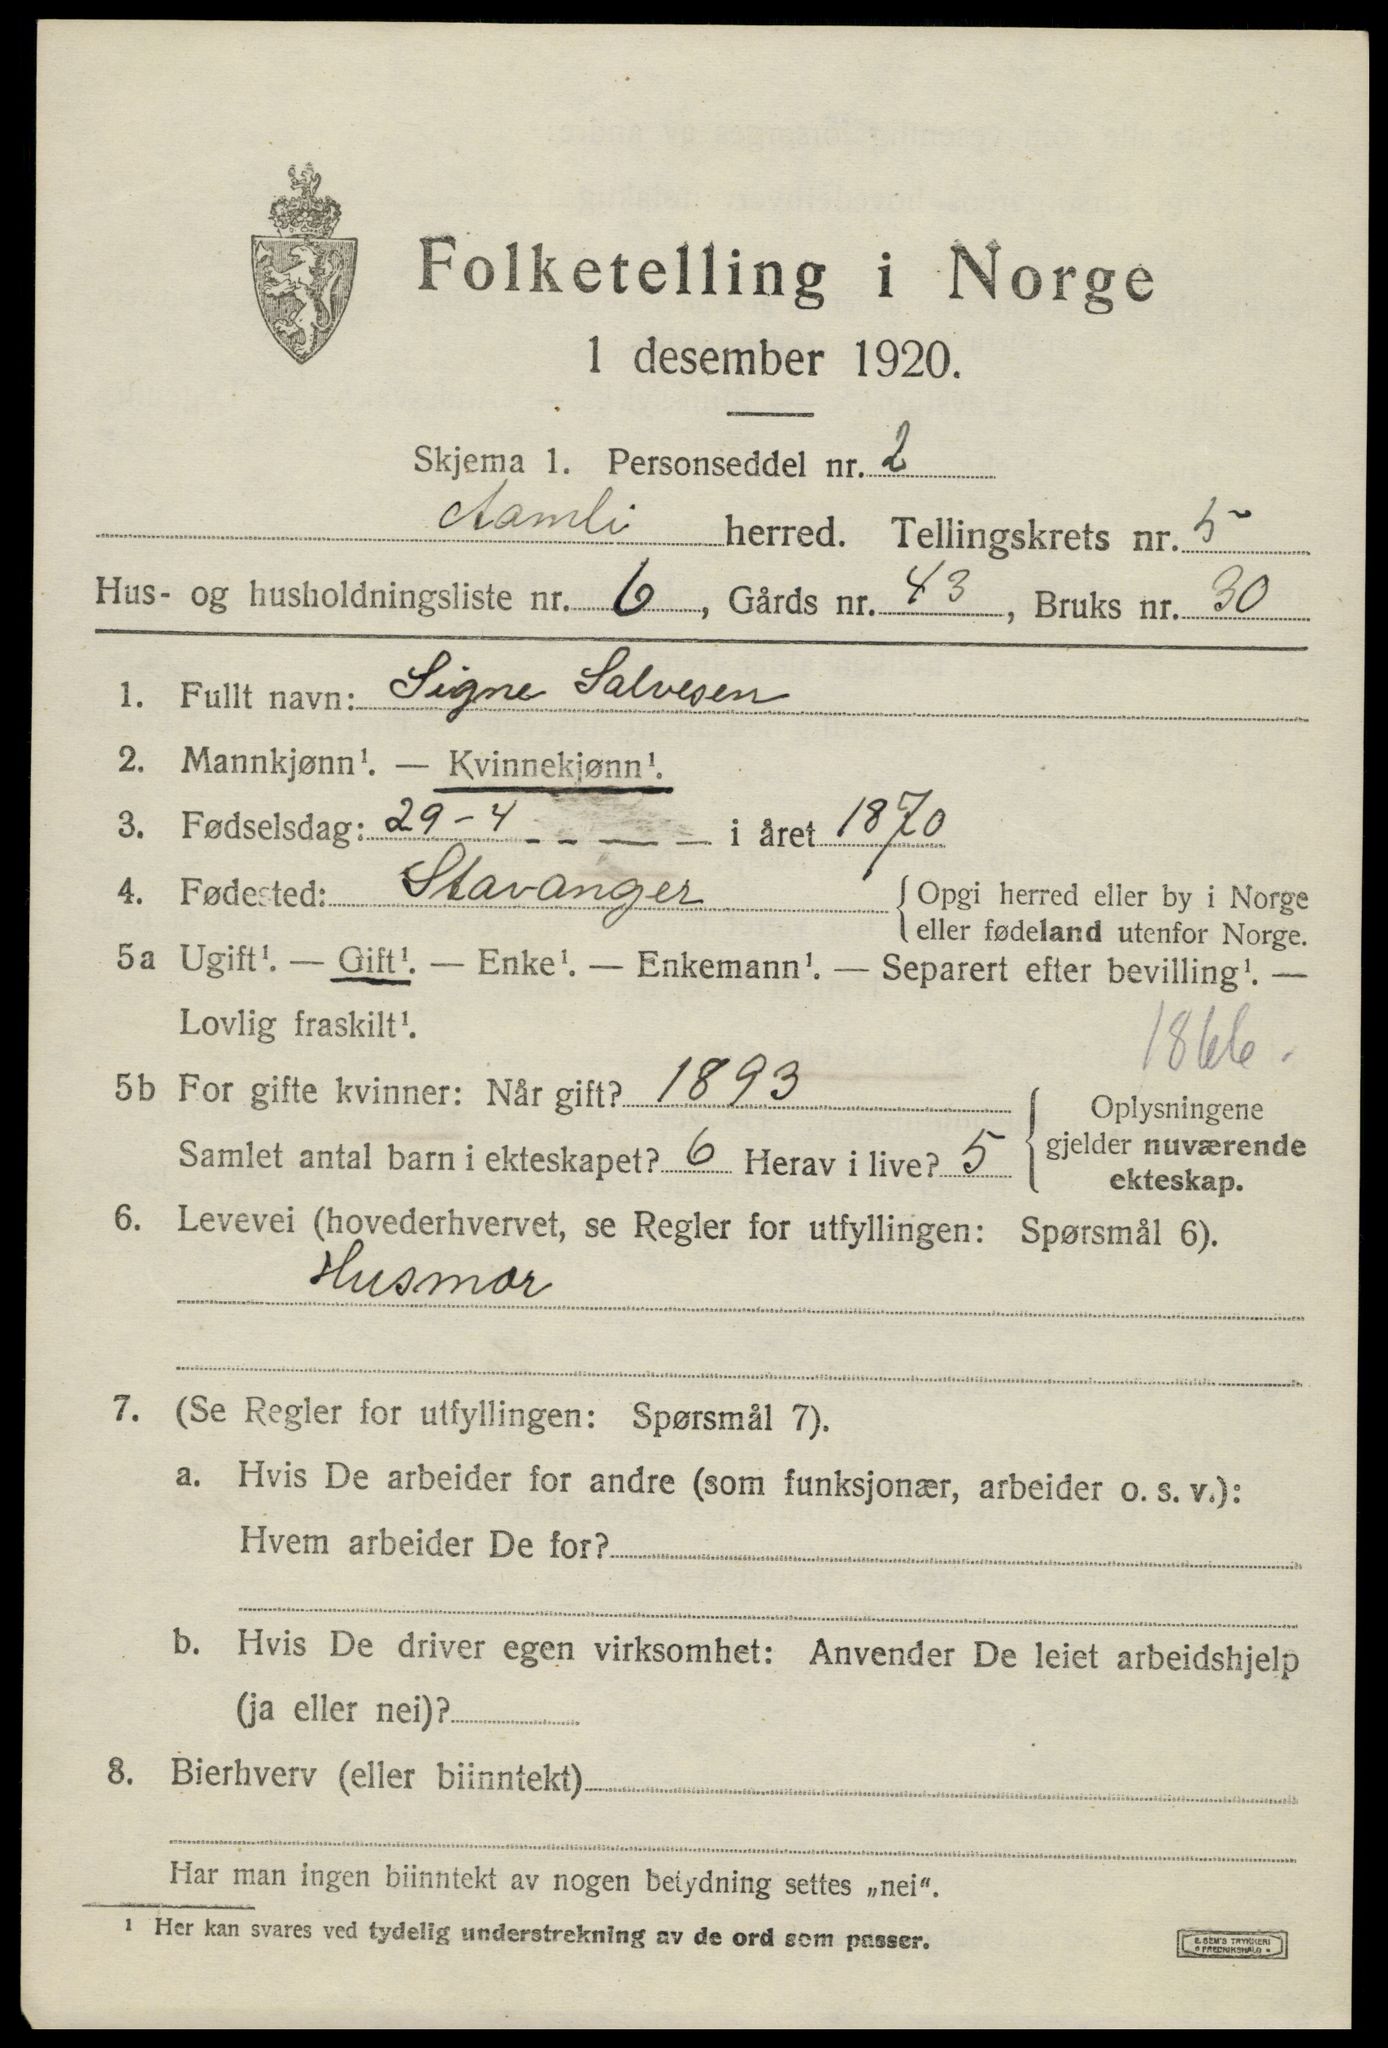 Folketelling i Norge
1 desember 1920.
Skjema 1. Personseddel nr. 2
Aamli herred. Tellingskrets nr. 5
Hus- og husholdningsliste nr. 6, Gårds nr. 43, Bruks nr. 30
1. Fullt navn: Signe Salvesen
2. Mannkjønn¹. — Kvinnekjønn¹.
3. Fødselsdag: 29-4 i året 1870
4. Fødested: Stavanger { Opgi herred eller by i Norge
eller fødeland utenfor Norge.
5a Ugift¹. — Gift¹. — Enke¹. — Enkemann¹. — Separert efter bevilling¹. —
Lovlig fraskilt¹.
1866.
5b For gifte kvinner: Når gift? 1893
Samlet antal barn i ekteskapet? 6 Herav i live? 5
{ Oplysningene
gjelder nuværende
ekteskap.
6. Levevei (hovederhvervet, se Regler for utfyllingen: Spørsmål 6).
Husmor
7. (Se Regler for utfyllingen: Spørsmål 7).
a. Hvis De arbeider for andre (som funksjonær, arbeider o. s. v.):
Hvem arbeider De for?
b. Hvis De driver egen virksomhet: Anvender De leiet arbeidshjelp
(ja eller nei)?
8. Bierhverv (eller biinntekt)
Har man ingen biinntekt av nogen betydning settes „nei“.
¹ Her kan svares ved tydelig understrekning av de ord som passer.
E. SEM'S TRYKKERI
FREDRIKSHALD